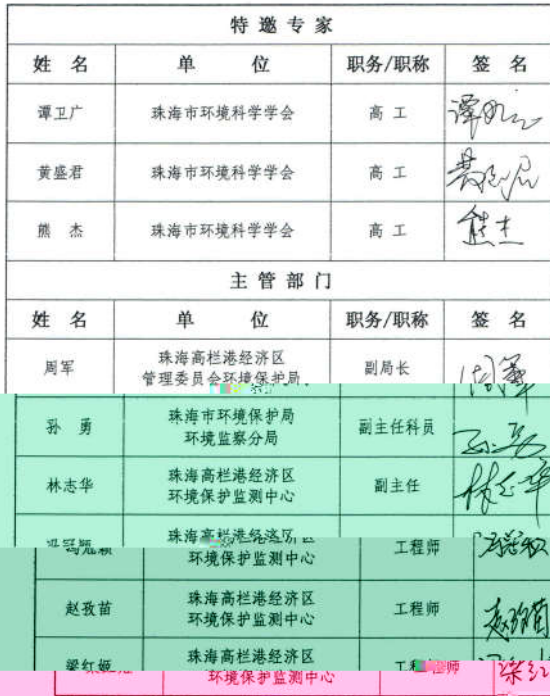 特邀专家
姓 名 单 位 职务/职称 签 名
谭卫广 珠海市环境科学学会 高 工
黄盛君 珠海市环境科学学会 高 工
熊 杰 珠海市环境科学学会 高 工 熊杰
主管部门
姓 名 单 位 职务/职称 签 名
周军 珠海高栏港经济区
管理委员会环境保护局 副局长 周军
孙 勇 珠海市环境保护局
环境监察分局 副主任科员 孙勇
林志华 珠海高栏港经济区
环境保护监测中心 副主任 林志华
珠海高栏港经济区
环境保护监测中心 工程师
赵孜苗 珠海高栏港经济区
环境保护监测中心 工程师 赵孜苗
梁红姬 珠海高栏港经济区
环境保护监测中心 工程师 梁红